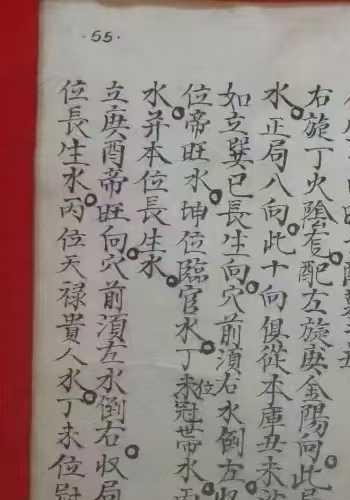 ·55·
右旋丁火陰配左旋庚金陽向此
水。正局八向。此十向俱從本庫丑未
如立巽巳長生向。穴前須右水倒左收
位帝旺水。坤位臨官水。丁未位冠帶水。
水。并本位長生水。
立庚酉帝旺向。穴前須左水倒右。收局
位長生水。丙位天禄貴人水。丁未位冠